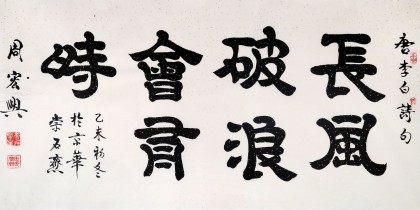 唐李白詩句
長風
破浪
會有
時
乙未初冬
於京華
崇石齋
周宏興